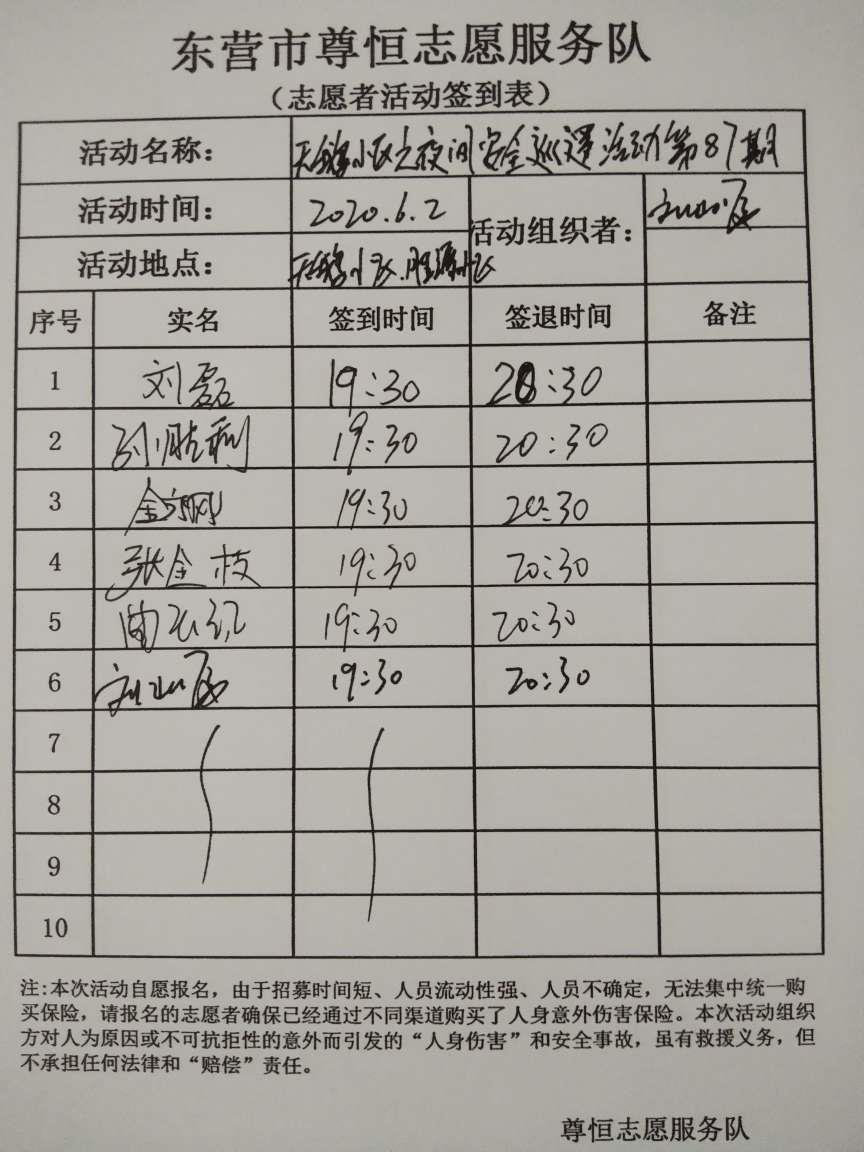 东营市尊恒志愿服务队
（志愿者活动签到表）
活动名称： 小区之夜间安全巡逻活动第87期
活动时间： 2020.6.2 活动组织者：
活动地点： 小区
序号 实名 签到时间 签退时间 备注
1 刘磊 19:30 20:30
2 孙胜利 19:30 20:30
3 19:30 20:30
4 张金枝 19:30 20:30
5 19:30 20:30
6 19:30 20:30
7
8
9
10
注:本次活动自愿报名，由于招募时间短、人员流动性强、人员不确定，无法集中统一购
买保险，请报名的志愿者确保已经通过不同渠道购买了人身意外伤害保险。本次活动组织
方对人为原因或不可抗拒性的意外而引发的“人身伤害”和安全事故，虽有救援义务，但
不承担任何法律和“赔偿”责任。
尊恒志愿服务队